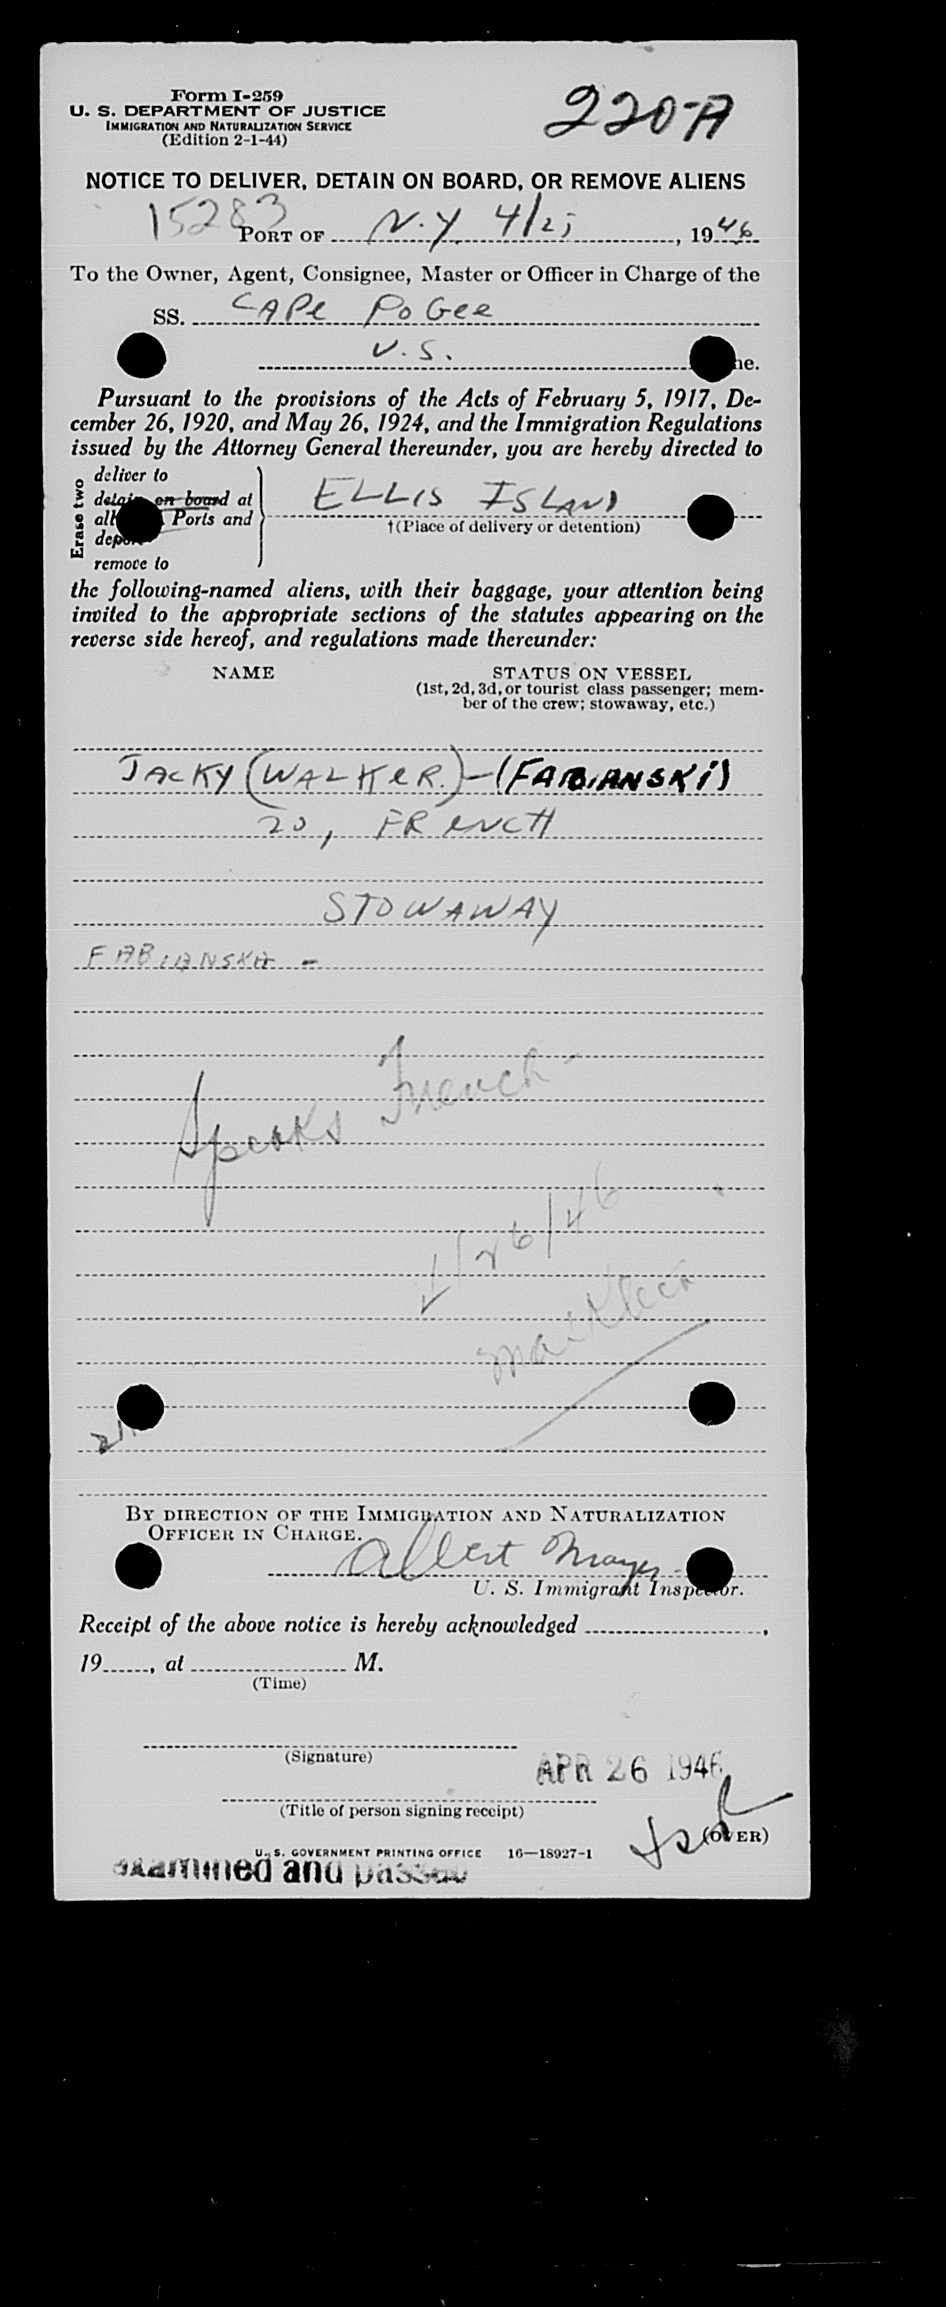 Form I-259
220-A
U. S. DEPARTMENT OF JUSTICE
IMMIGRATION AND NATURALIZATION SERVICE
(Edition 2-1-44)
NOTICE TO DELIVER, DETAIN ON BOARD, OR REMOVE ALIENS
15283
PORT OF N.Y. 4/25, 1946
To the Owner, Agent, Consignee, Master or Officer in Charge of the
SS. CAPe PoGee
U.S.
Pursuant to the provisions of the Acts of February 5, 1917, De-
cember 26, 1920, and May 26, 1924, and the Immigration Regulations
issued by the Attorney General thereunder, you are hereby directed to
Erase two
deliver to
detain on board at
all Ports and
deport
remove to
ELLIS ISLAND
†(Place of delivery or detention)
the following-named aliens, with their baggage, your attention being
invited to the appropriate sections of the statutes appearing on the
reverse side hereof, and regulations made thereunder:
NAME
STATUS ON VESSEL
(1st, 2d, 3d, or tourist class passenger; mem-
ber of the crew; stowaway, etc.)
JACKY (WALKeR.) - (FABIANSKI)
20, FReNCH
STOWAWAY
FABIANSKA -
Speaks French -
4/26/46
21
BY DIRECTION OF THE IMMIGRATION AND NATURALIZATION
OFFICER IN CHARGE.
Albert Mayer
U. S. Immigrant Inspector.
Receipt of the above notice is hereby acknowledged ,
19 , at M.
(Time)
(Signature)
APR 26 1946
(Title of person signing receipt)
(OVER)
U. S. GOVERNMENT PRINTING OFFICE 16—18927-1
examined and passed